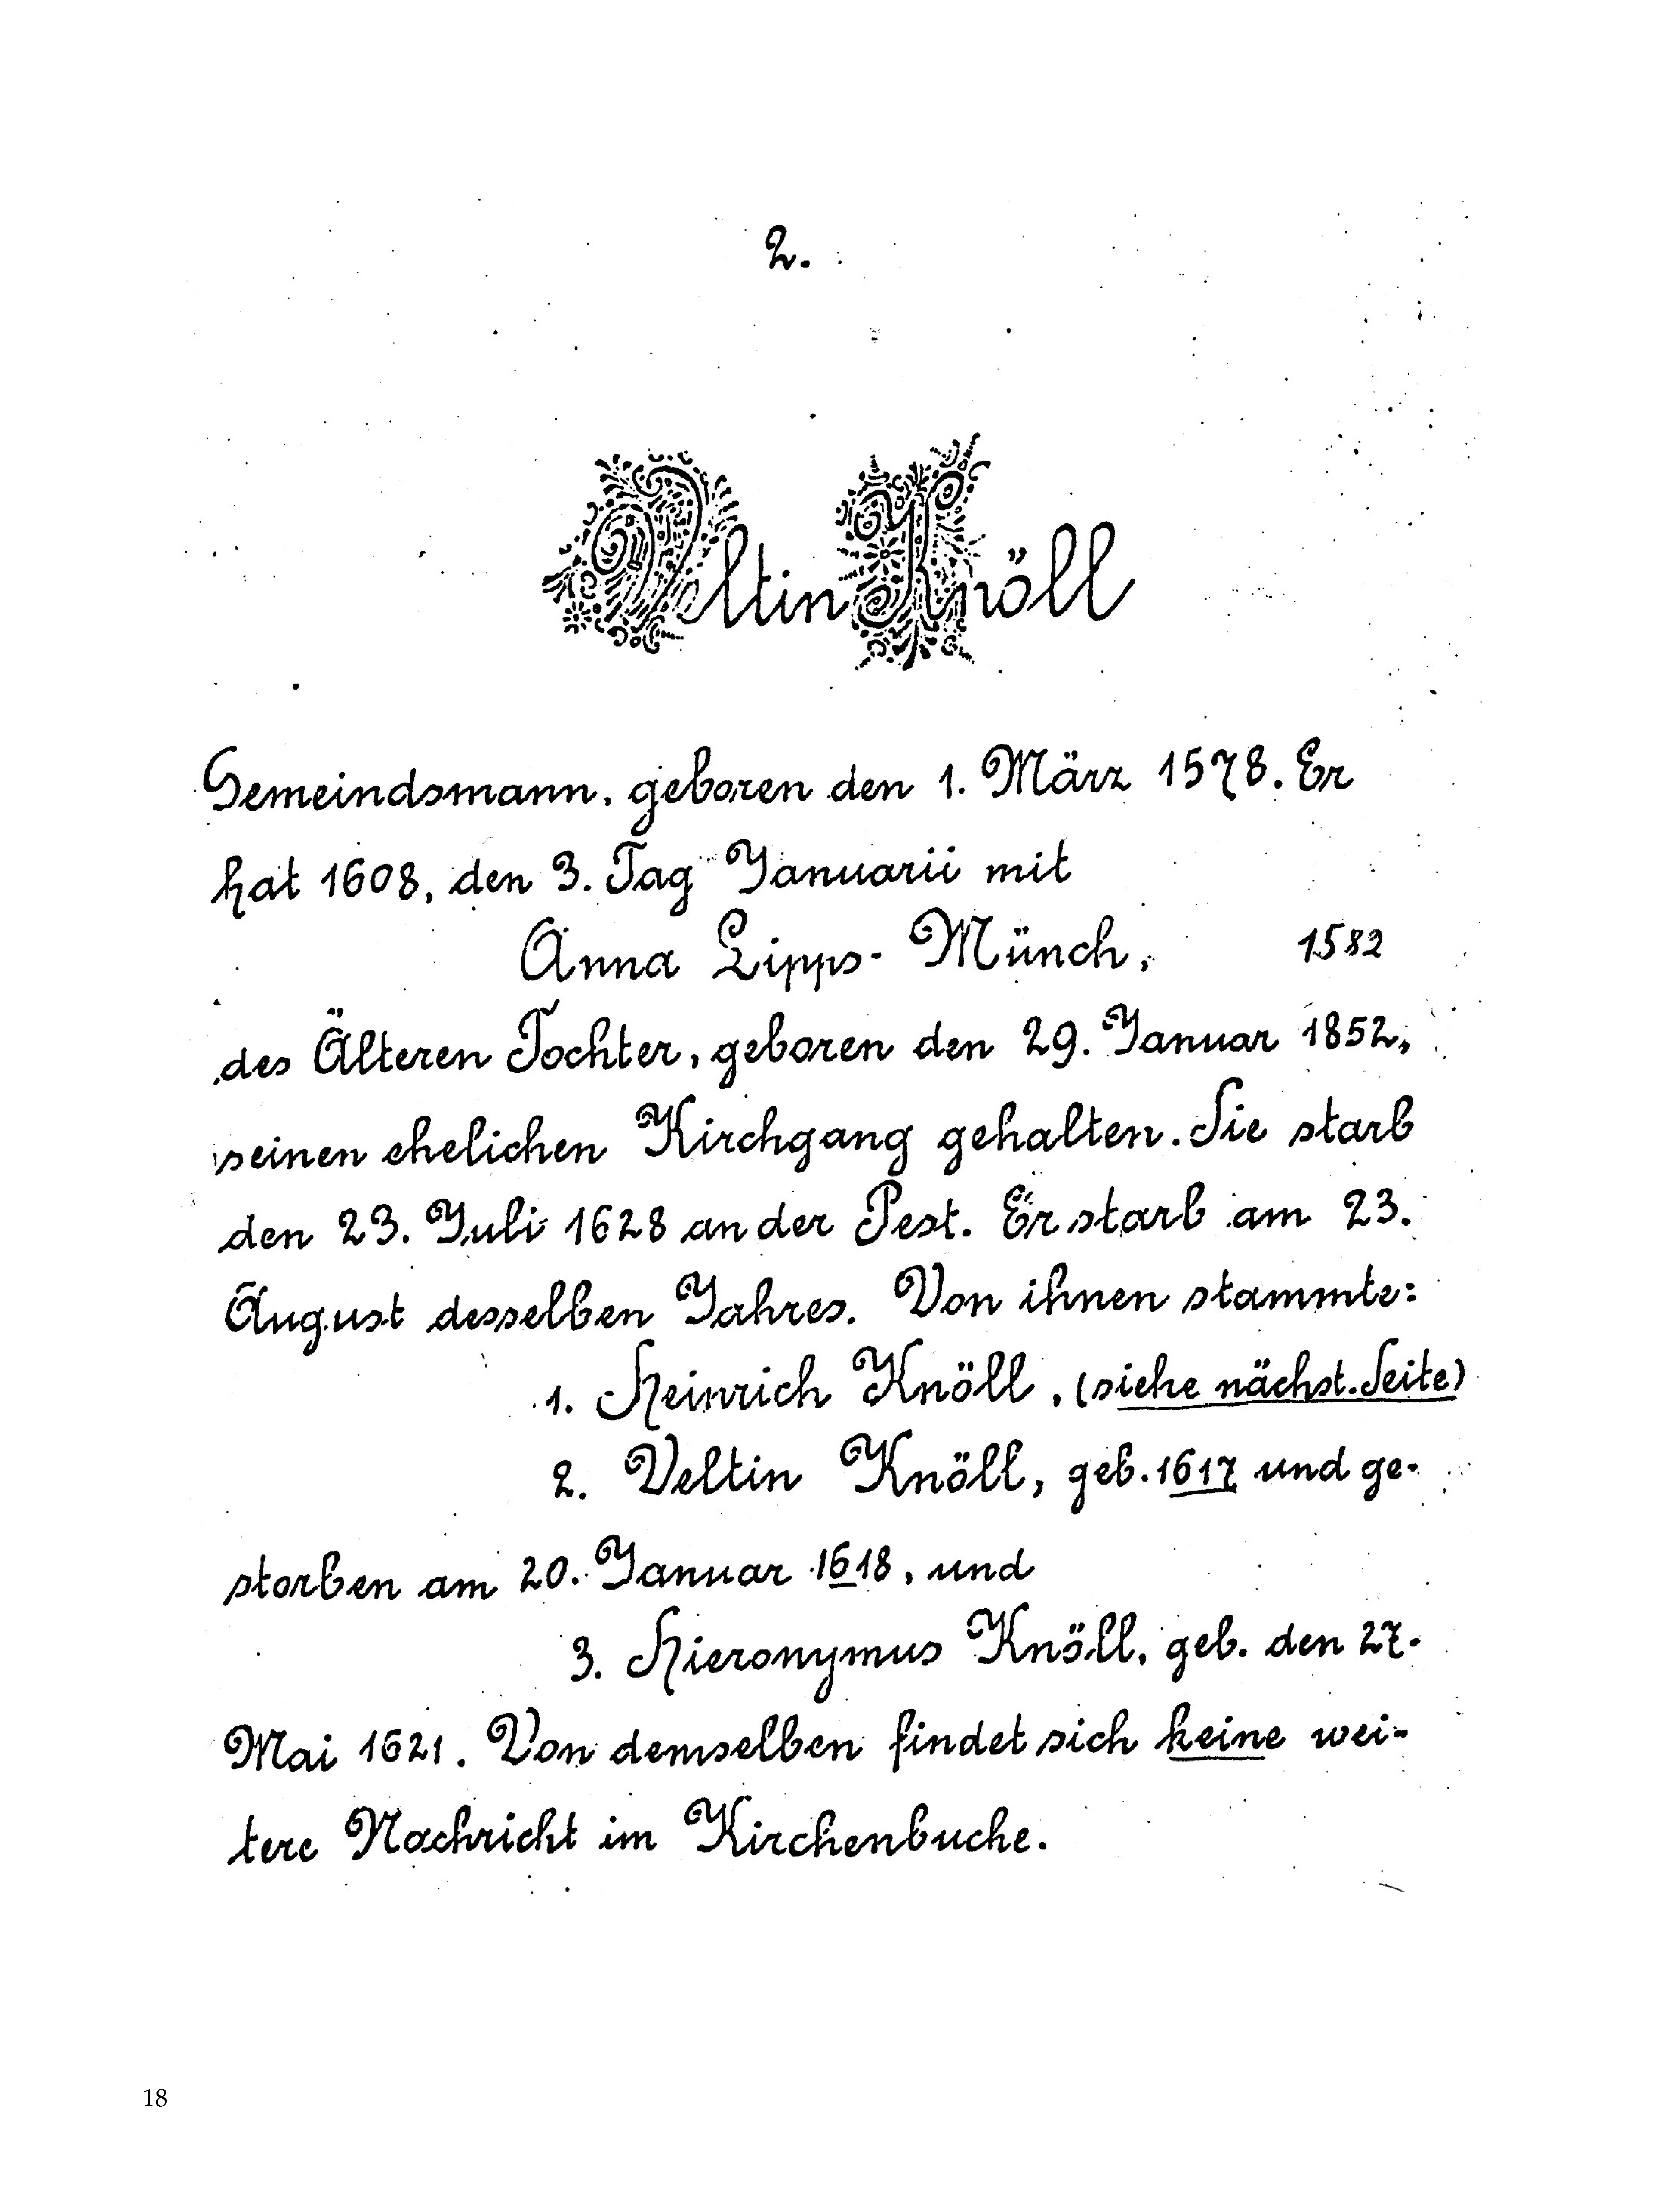 2.
Veltin Knöll
Gemeindsmann, geboren den 1. März 1578. Er
hat 1608, den 3. Tag Januarii mit
Anna Lipps-Münch, 1582
des Älteren Tochter, geboren den 29. Januar 1852,
seinen ehelichen Kirchgang gehalten. Sie starb
den 23. Juli 1628 an der Pest. Er starb am 23.
August desselben Jahres. Von ihnen stammte:
1. Heinrich Knöll, (siehe nächst. Seite)
2. Veltin Knöll, geb. 1617 und ge-
storben am 20. Januar 1618, und
3. Hieronymus Knöll, geb. den 27.
Mai 1621. Von demselben findet sich keine wei-
tere Nachricht im Kirchenbuche.
18